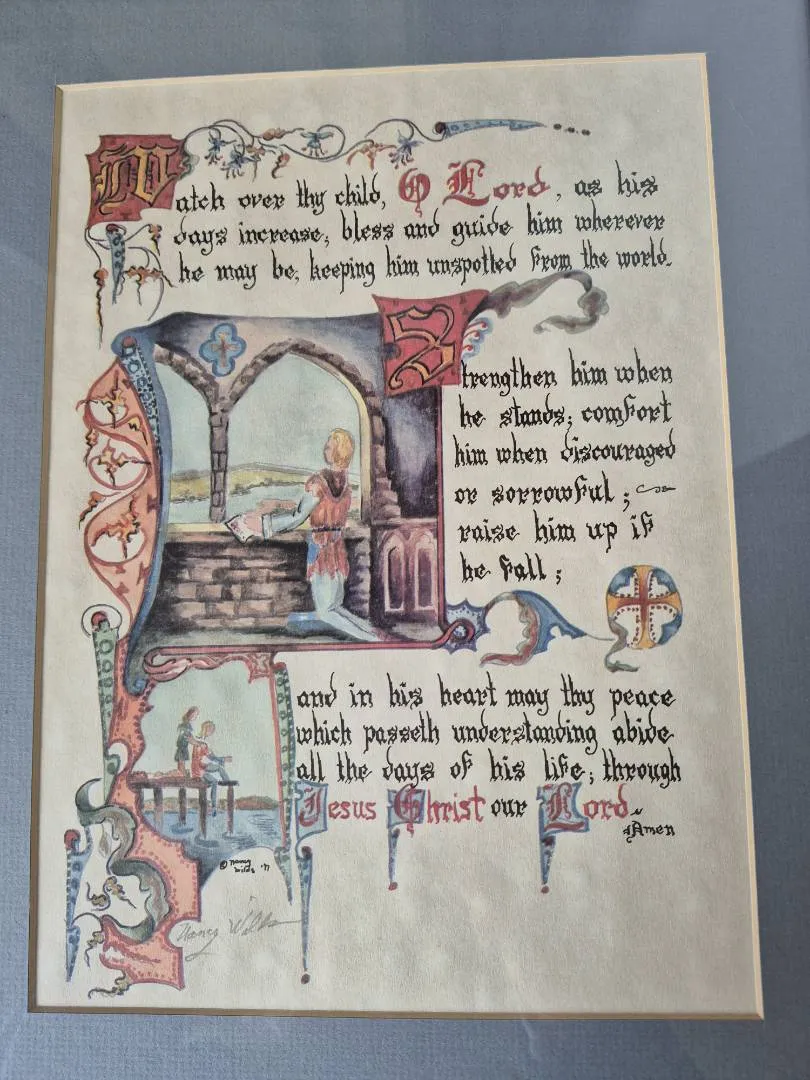 Watch over thy child, O Lord, as his
days increase; bless and guide him wherever
he may be, keeping him unspotted from the world.
Strengthen him when
he stands; comfort
him when discouraged
or sorrowful;
raise him up if
he fall;
and in his heart may thy peace
which passeth understanding abide
all the days of his life; through
Jesus Christ our Lord
Amen
© Nancy
Nancy